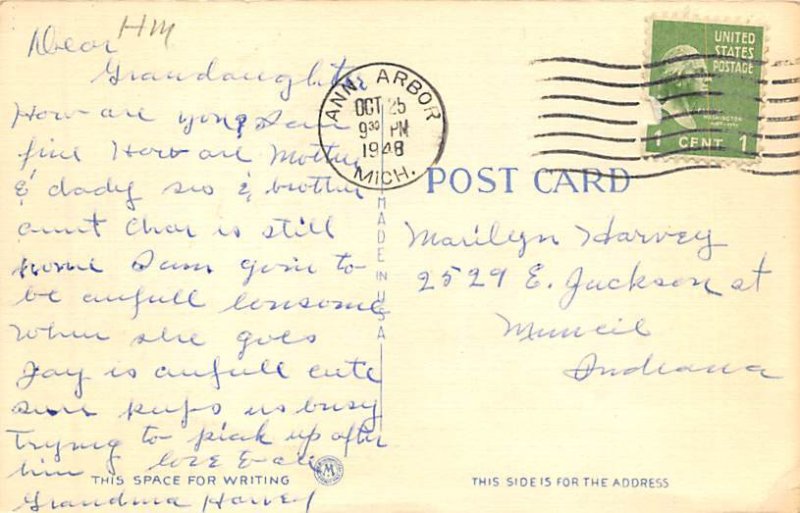 HM
Dear
Grandaughter
How are you I am
fine How are Mother
& dady sis & brother
aunt Char is still
home I am goin to
be awfull lonsome
when she goes
Jay is awfull cute
sure keeps us busy
Trying to pick up after
him love to all
Grandma Harvey
THIS SPACE FOR WRITING
ANN ARBOR
OCT 25
9 30 PM
1948
MICH.
MADE IN U.S.A.
UNITED
STATES
POSTAGE
WASHINGTON
1 CENT 1
POST CARD
Marilyn Harvey
2529 E. Jackson st
Muncie
Indiana
THIS SIDE IS FOR THE ADDRESS